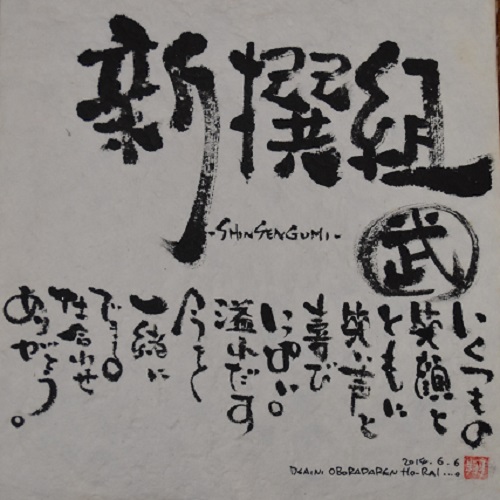 新撰組
-SHINSENGUMI-
武
いくつもの
笑顔と
ともに
笑い声と
喜び
いっぱい。
溢れだす
今を
一緒に
できる。
仕合わせ
ありがとう。
Ho-Rai